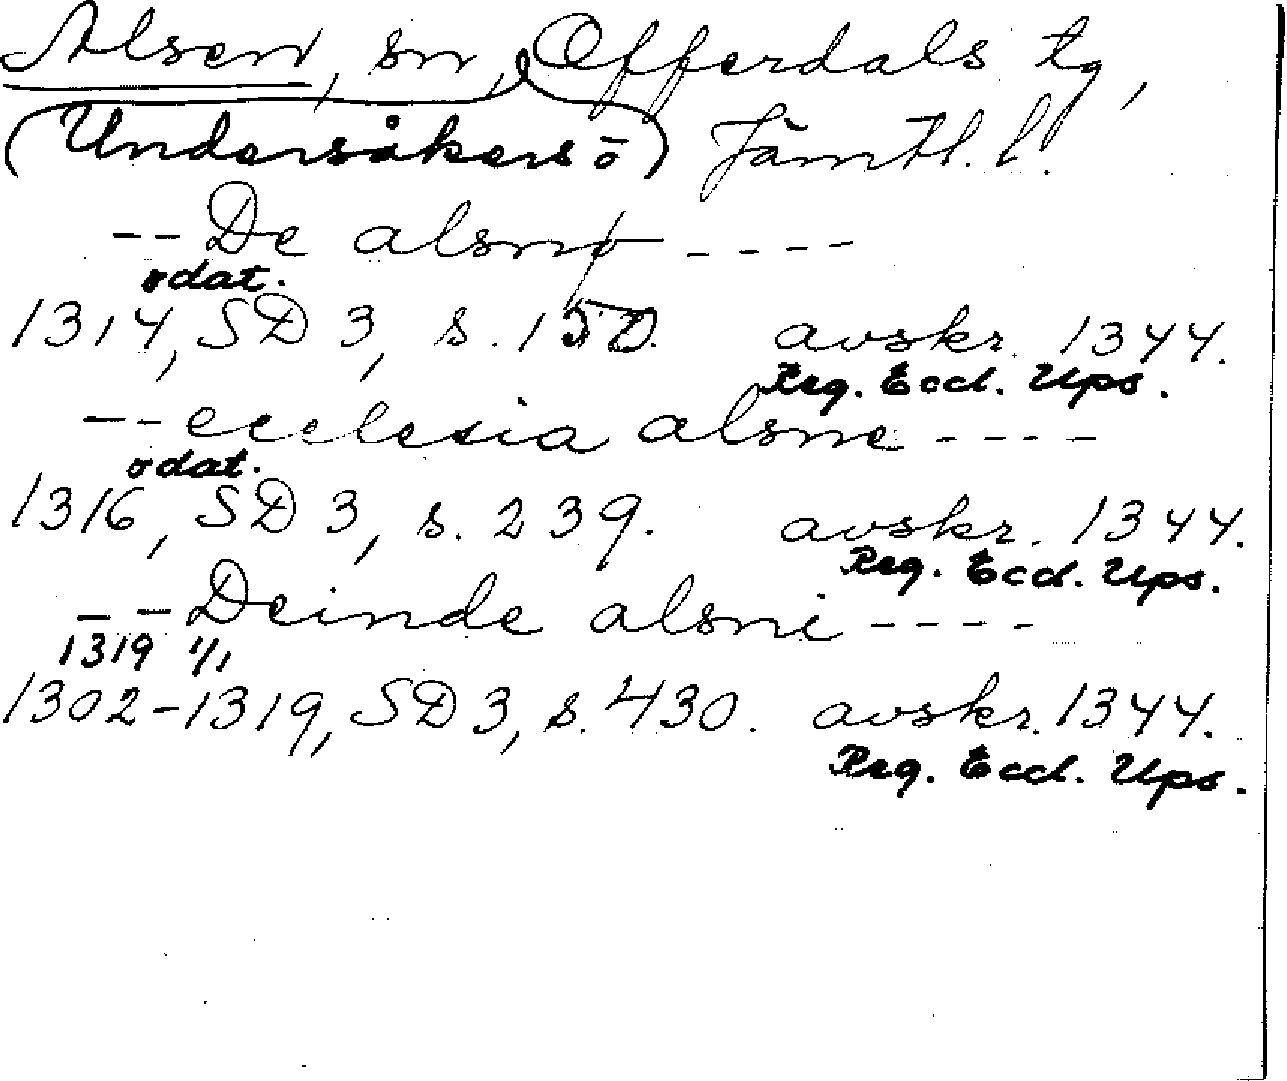 Alsen, sn, Offerdals tg,
(Undersåkers ō) Jämtl. l.
-- De alsnø ----
odat.
1314, SD 3, s. 150. avskr. 1344.
Reg. Eccl. Ups.
-- ecclesia alsne ----
odat.
1316, SD 3, s. 239. avskr. 1344.
Reg. Eccl. Ups.
-- Deinde alsni ----
1319 1/1
1302-1319, SD 3, s. 430. avskr. 1344.
Reg. Eccl. Ups.